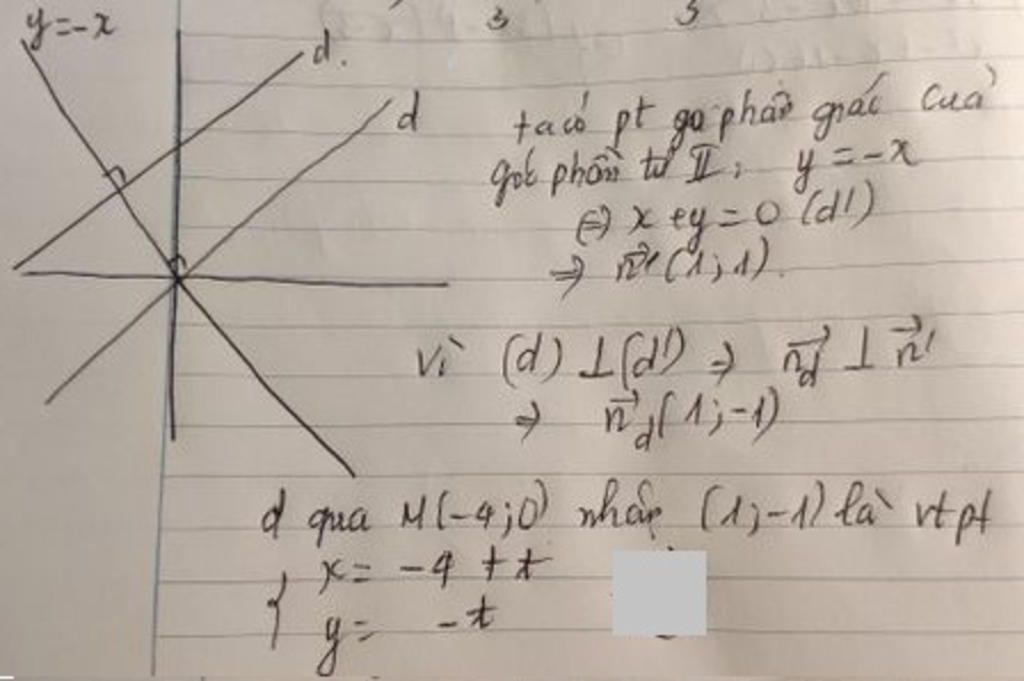 3 3
y = -x
d.
d
ta có pt gọ phân giác của
góc phần tư II, y = -x
⇔ x + y = 0 (d')
⇒ n⃗' (1; 1).
Vì (d) ⊥ (d') ⇒ n⃗d ⊥ n⃗'
⇒ n⃗d (1; -1)
d qua M(-4; 0) nhận (1; -1) là vtpt
{ x = -4 + t
y = -t